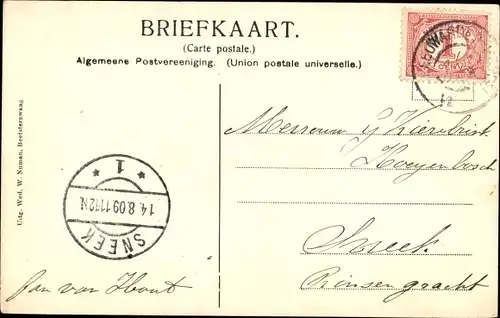 BRIEFKAART.
(Carte postale.)
Algemeene Postvereeniging. (Union postale universelle.)
LEEUWARDEN
12
Mevrouw
Sneek
Prinsengracht
Uitg. Wed. W. Numan, Beetsterzwaag
* 1 *
14.8.09 11-12N
SNEEK
Jan van Hout